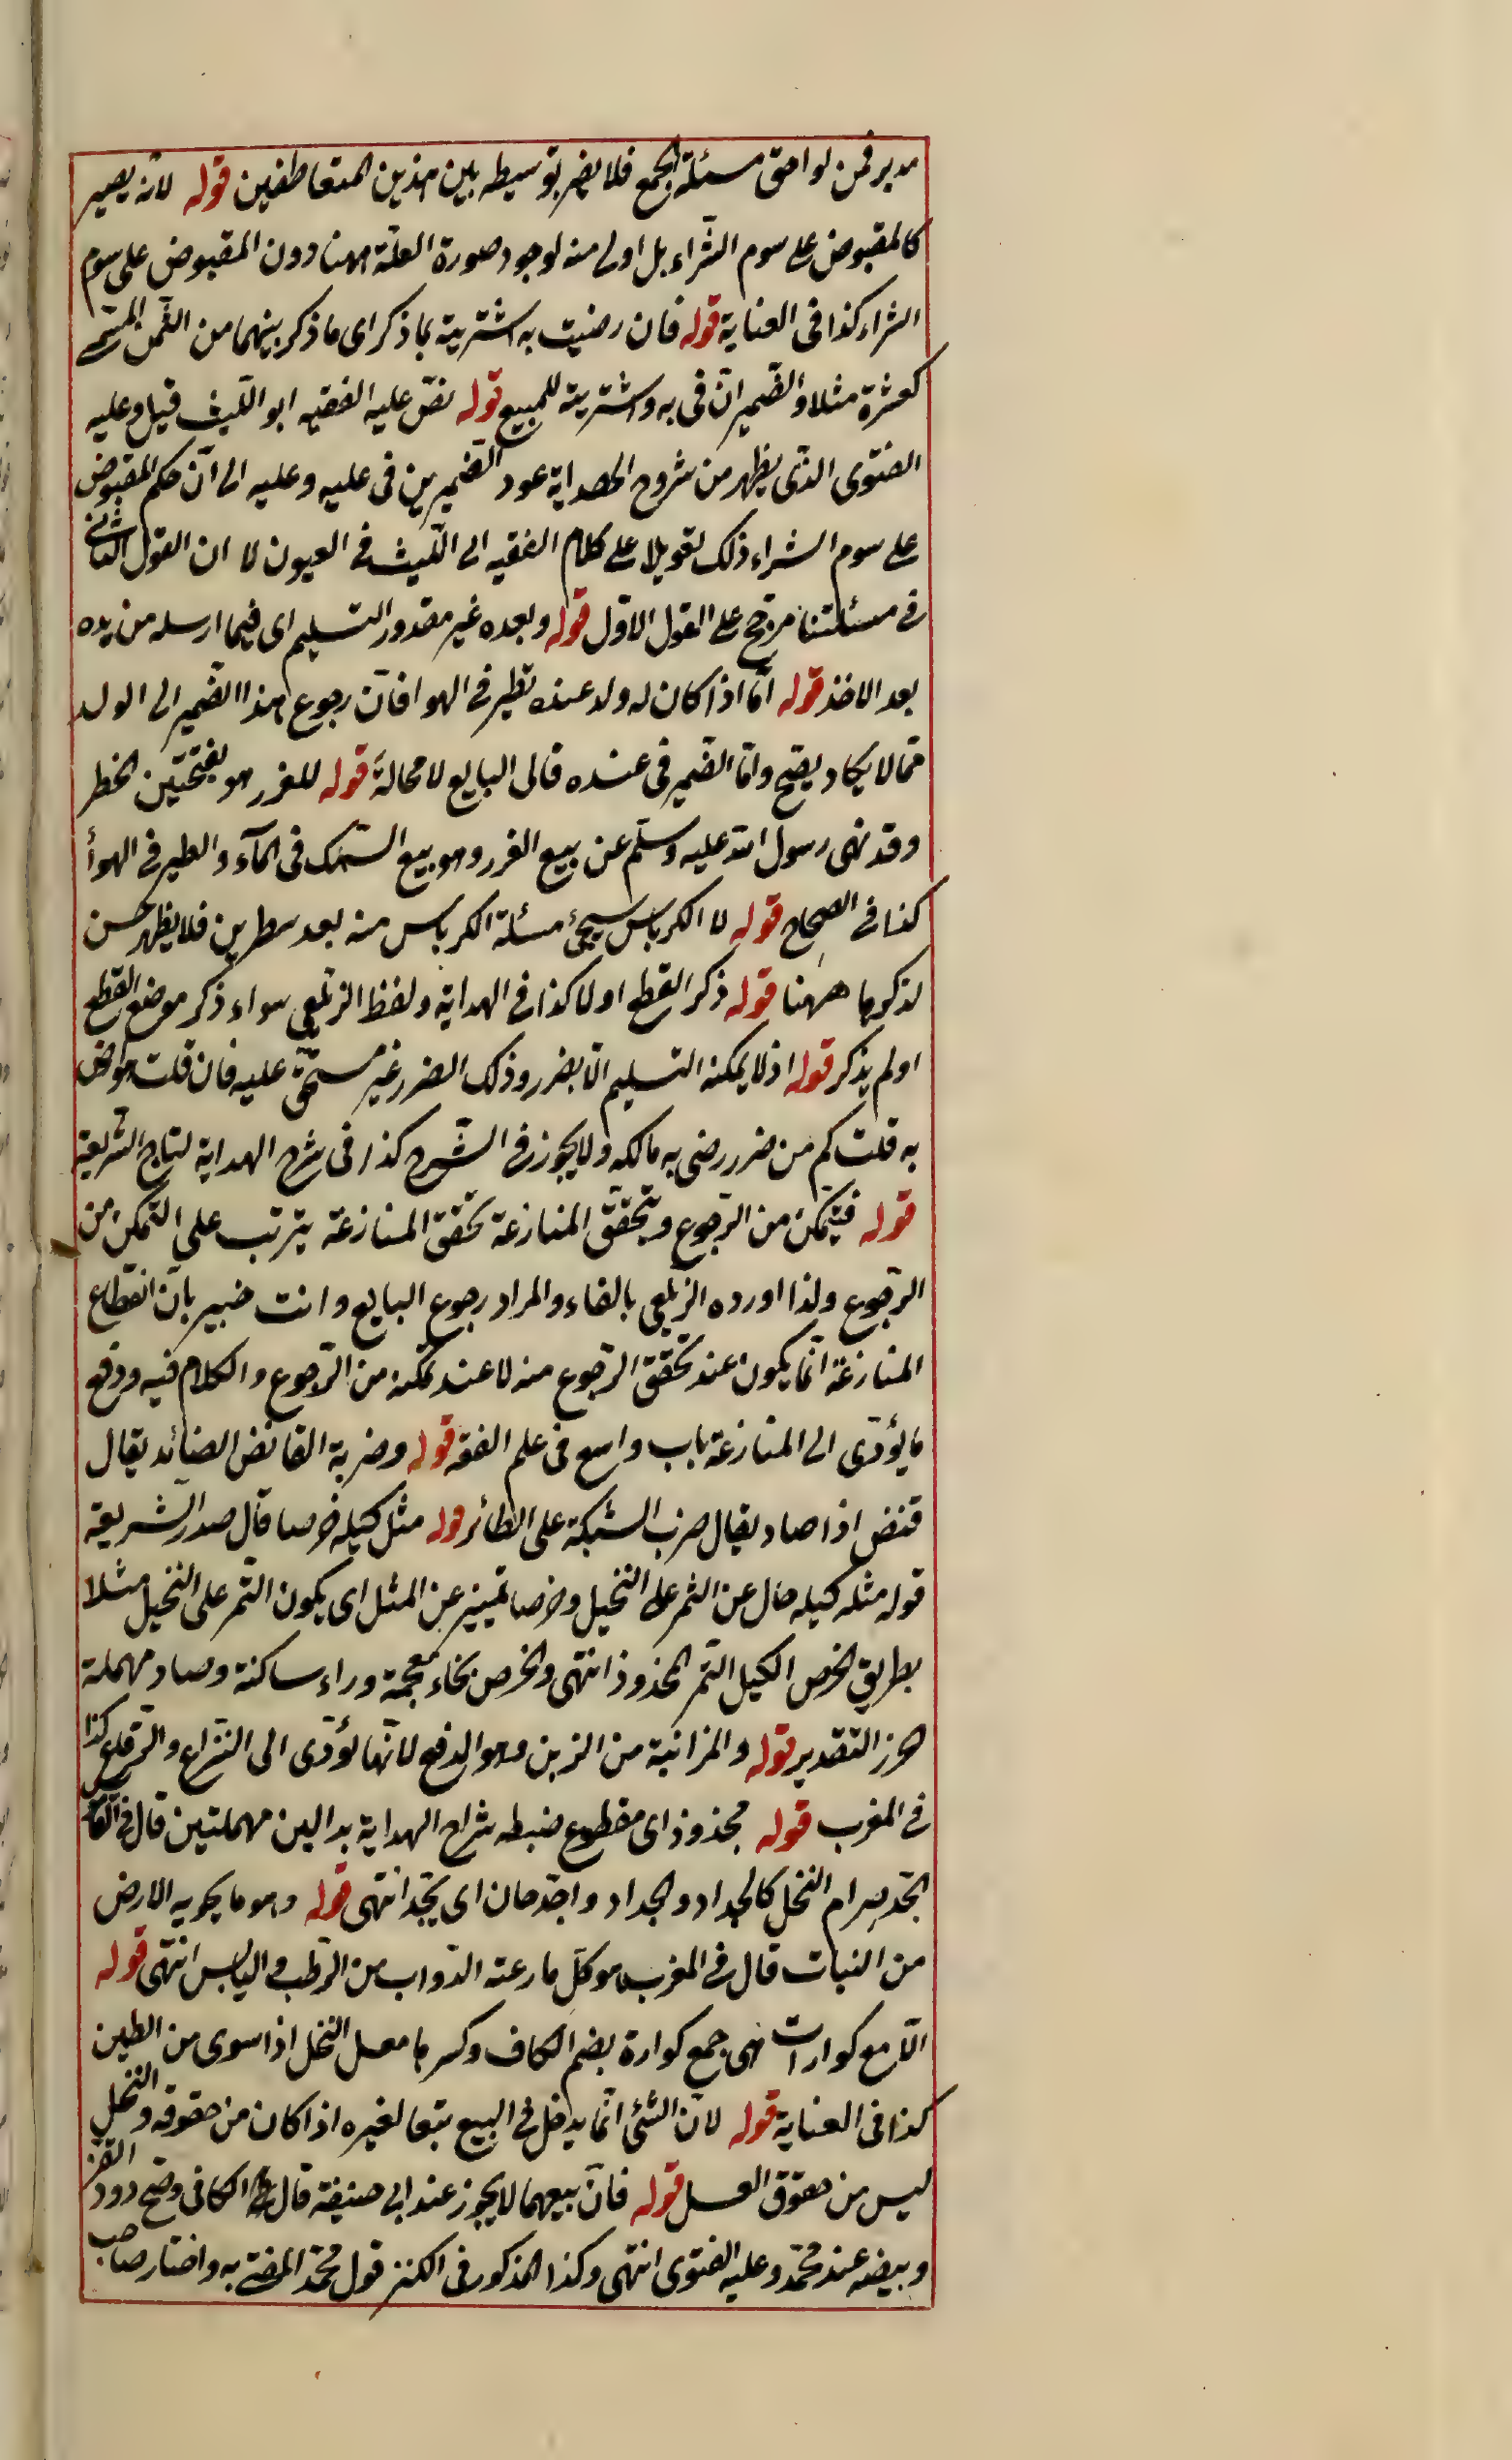 مدبر فمن لواحق مسئلة الجمع فلا يضر توسيطه بين هذين المتعاطفين قوله لانه يصير
كالمقبوض على سوم الشراء بل اولى منه لوجود صورة العلة ههنا دون المقبوض على سوم
الشراء كذا فى العناية قوله فان رضيت به اشتريته بما ذكر اى ما ذكر بينهما من الثمن المسمى
كعشرة مثلا والضميران فى به واشتريته للمبيع قوله نص عليه الفقيه ابو الليث قيل وعليه
الفتوى الذى يظهر من شروح الهداية عود الضميرين فى عليه وعليه الى ان حكم المقبوض
على سوم الشراء ذلك تعويلا على كلام الفقيه ابى الليث فى العيون لا ان القول الثانى
فى مسئلتنا مرجح على القول الاول قوله وبعده غير مقدور التسليم اى فيما ارسله من يده
بعد الاخذ قوله اما اذا كان له ولد عنده تطير فى الهوا فان رجوع هذا الضمير الى الولد
مما لا يكاد يصح واما الضمير فى عنده فالى البايع لا محالة قوله للغرر هو بفتحتين الخطر
وقد نهى رسول الله عليه وسلم عن بيع الغرر وهو بيع السمك فى المآء والطير فى الهوأ
كذا فى الصحاح قوله لا الكرباس سيجئ مسئلة الكرباس منه بعد سطرين فلا يظهر حسن
لذكرها ههنا قوله ذكر القطع اولا كذا فى الهداية ولفظ الزيلعى سواء ذكر موضع القطع
او لم يذكر قوله اذ لا يمكنه التسليم الا بضرر وذلك الضرر غير مستحق عليه فان قلت هو راض
به قلت كم من ضرر رضى به مالكه ولا يجوز فى الشرع كذا فى شرح الهداية لتاج الشريعة
قوله فيتمكن من الرجوع ويتحقق المنازعة تحقق المنازعة يترتب على التمكن من
الرجوع ولذا اورده الزيلعى بالفاء والمراد رجوع البايع وانت خبير بان انقطاع
المنازعة انما يكون عند تحقق الرجوع منه لا عند تمكنه من الرجوع والكلام فيه ودفع
ما يؤدى الى المنازعة باب واسع فى علم الفقه قوله وضربة القانص الصائد يقال
قنص اذا صاد يقال ضرب الشبكة على الطائر قوله مثل كيله خرصا قال صدر الشريعة
قوله مثله كيله حال عن الثمر على النخيل وخرصا تمييز عن المثل اى يكون الثمر على النخيل مثلا
بطريق الخرص الكيل التمر المجذوذ انتهى والخرص بخاء معجمة وراء ساكنة وصاد مهملة
الحزر التقدير قوله والمزابنة من الزبن وهو الدفع لانها تؤدى الى النزاع والدفاع كذا
فى المغرب قوله مجذوذ اى مقطوع ضبطه شراح الهداية بدالين مهملتين قال فى القاموس
الجد صرام النخل كالجداد والجداد واجد حان اى يجد انتهى قوله وهو ما يحويه الارض
من النبات قال فى المغرب هو كل ما رعته الدواب من الرطب واليابس انتهى قوله
الا مع كوارات هى جمع كوارة بضم الكاف وكسرها معسل النحل اذا سوى من الطين
كذا فى العناية قوله لان الشئ انما يدخل فى البيع تبعا لغيره اذا كان من حقوقه والنحل
ليس من حقوق العسل قوله فان بيعهما لا يجوز عند ابى حنيفة قال فى الكافى وصح دود القز
وبيضه عند محمد وعليه الفتوى انتهى وكذا المذكور فى الكنز قول محمد المفتى به واختار صاحب